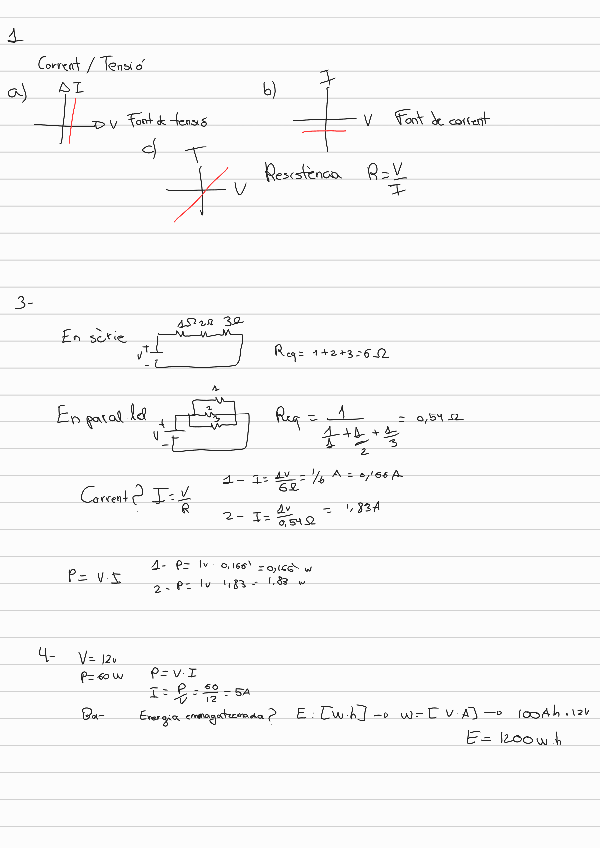 1
Corrent / Tensió
a) I V Font de tensió
b) I V Font de corrent
c) I V Resistència R = V/I
3-
En sèrie V + - 1Ω 2Ω 3Ω Req = 1+2+3 = 6 Ω
En paral·lel V + - 1 2 3 Req = 1 / (1/1 + 1/2 + 1/3) = 0,54 Ω
Corrent? I = V/R
1 - I = 1V/6Ω = 1/6 A = 0,166 A
2 - I = 1V/0,54Ω = 1,83A
P = V·I
1- P = 1V · 0,166 = 0,166 W
2 - P = 1V · 1,83 = 1,83 W
4-
V = 12V
P = 60W P = V·I
I = P/V = 60/12 = 5A
Energia emmagatzemada? E: [W·h] → W = [V·A] → 100Ah·12V
E = 1200Wh